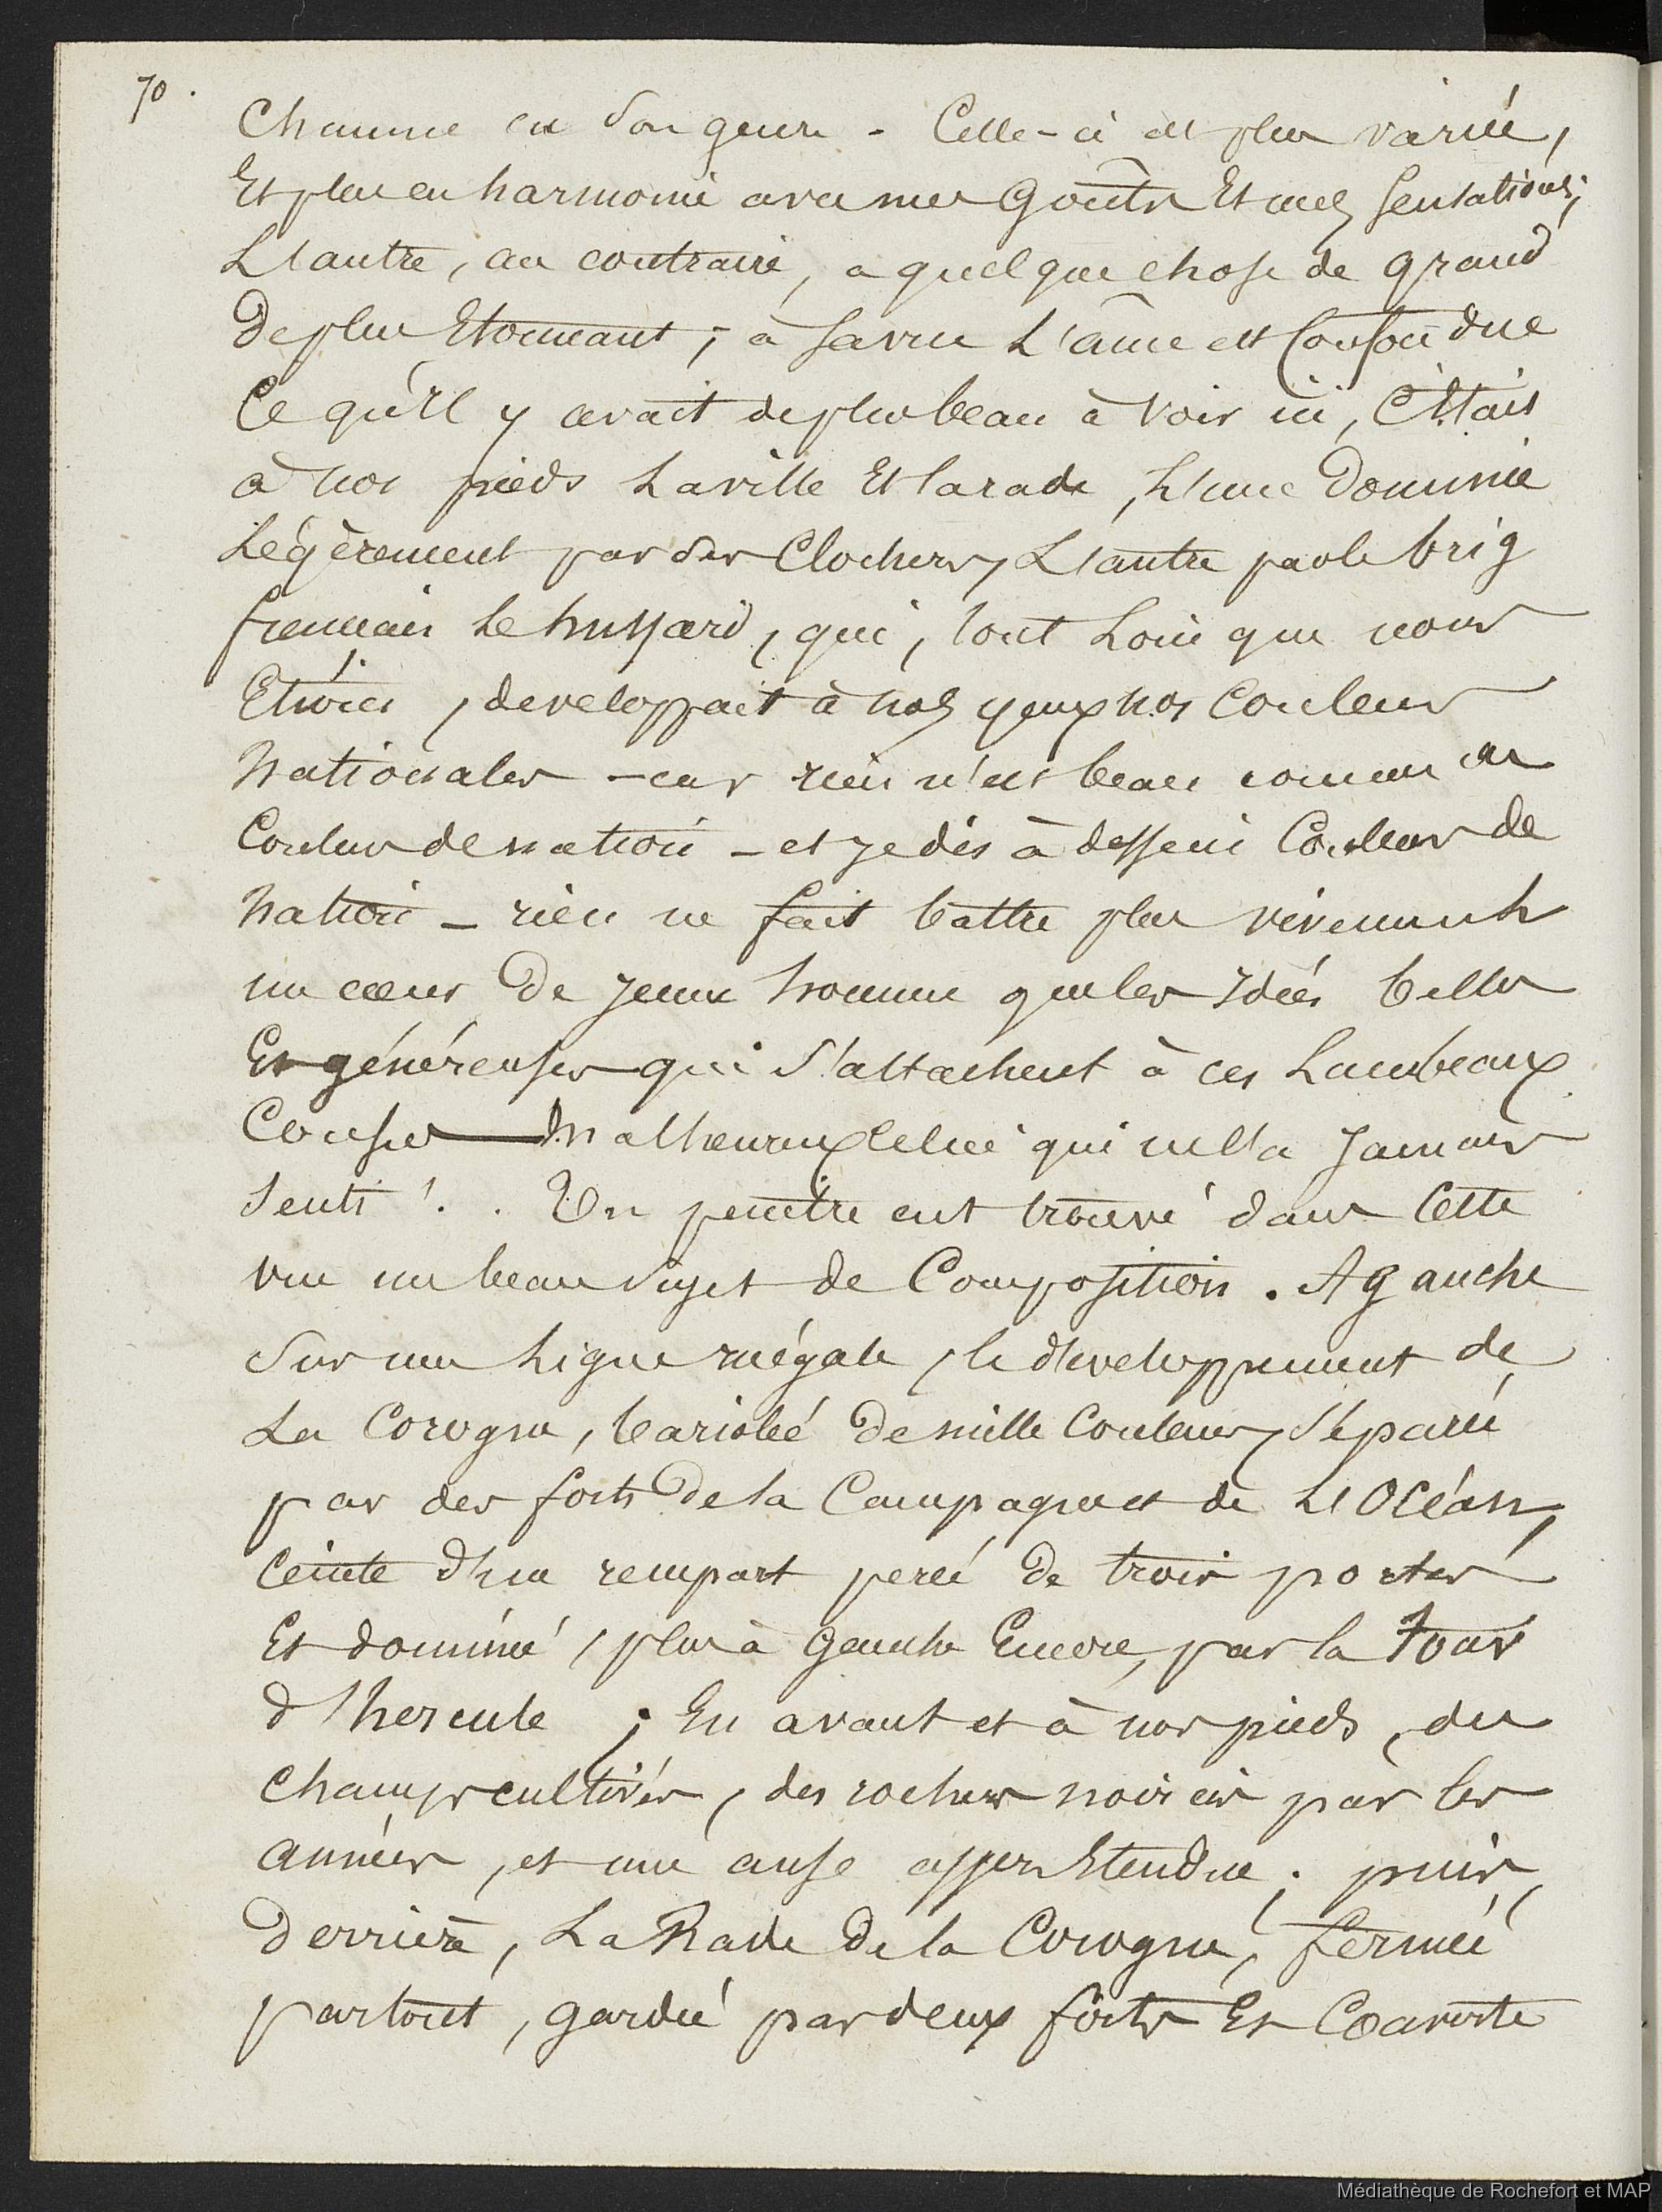 70.
Chacune en son genre - Celle-ci est plus variée,
Et plus en harmonie avec mes Goûts Et mes Sensations;
L'autre, au contraire, a quelque chose de grand
De plus Etonnant; à sa vue L'âme est Confondue
Ce qu'Il y avait de plus beau à Voir ici, C'Etait
à nos pieds La ville Et la rade, L'une Dominée
Légèrement par des Clochers, L'autre par le brig
français Le hussard, qui, tout Loin que nous
Etions, developpait à nos yeux nos Couleurs
Nationales - car rien n'est beau comme ces
Couleurs de nation - et je dis à dessein Couleurs de
Nation - rien ne fait battre plus vivement
un cœur De jeune homme que les Idées belles
Et généreuses qui s'attachent à ces Lambeaux
Cousus - Malheureux Celui qui ne l'a Jamais
Senti !. . Un peintre eut trouvé dans Cette
vue un beau sujet de Composition. A gauche
Sur une Ligne inégale, le développement de
La Corogne, bariolé De mille Couleurs, Séparée
par des forts De la Campagne et de L'Océan,
Ceinte d'un rempart percé De trois portes
Et dominée, plus à gauche Encore, par la tour
d'hercule ; En avant et à nos pieds, des
Champs cultivés, des rochers noircis par les
années, et une anse assez Etendue ; puis,
Derrière, La Rade De la Corogne, fermée
partout, gardée par deux forts Et Couverte
Médiathèque de Rochefort et MAP